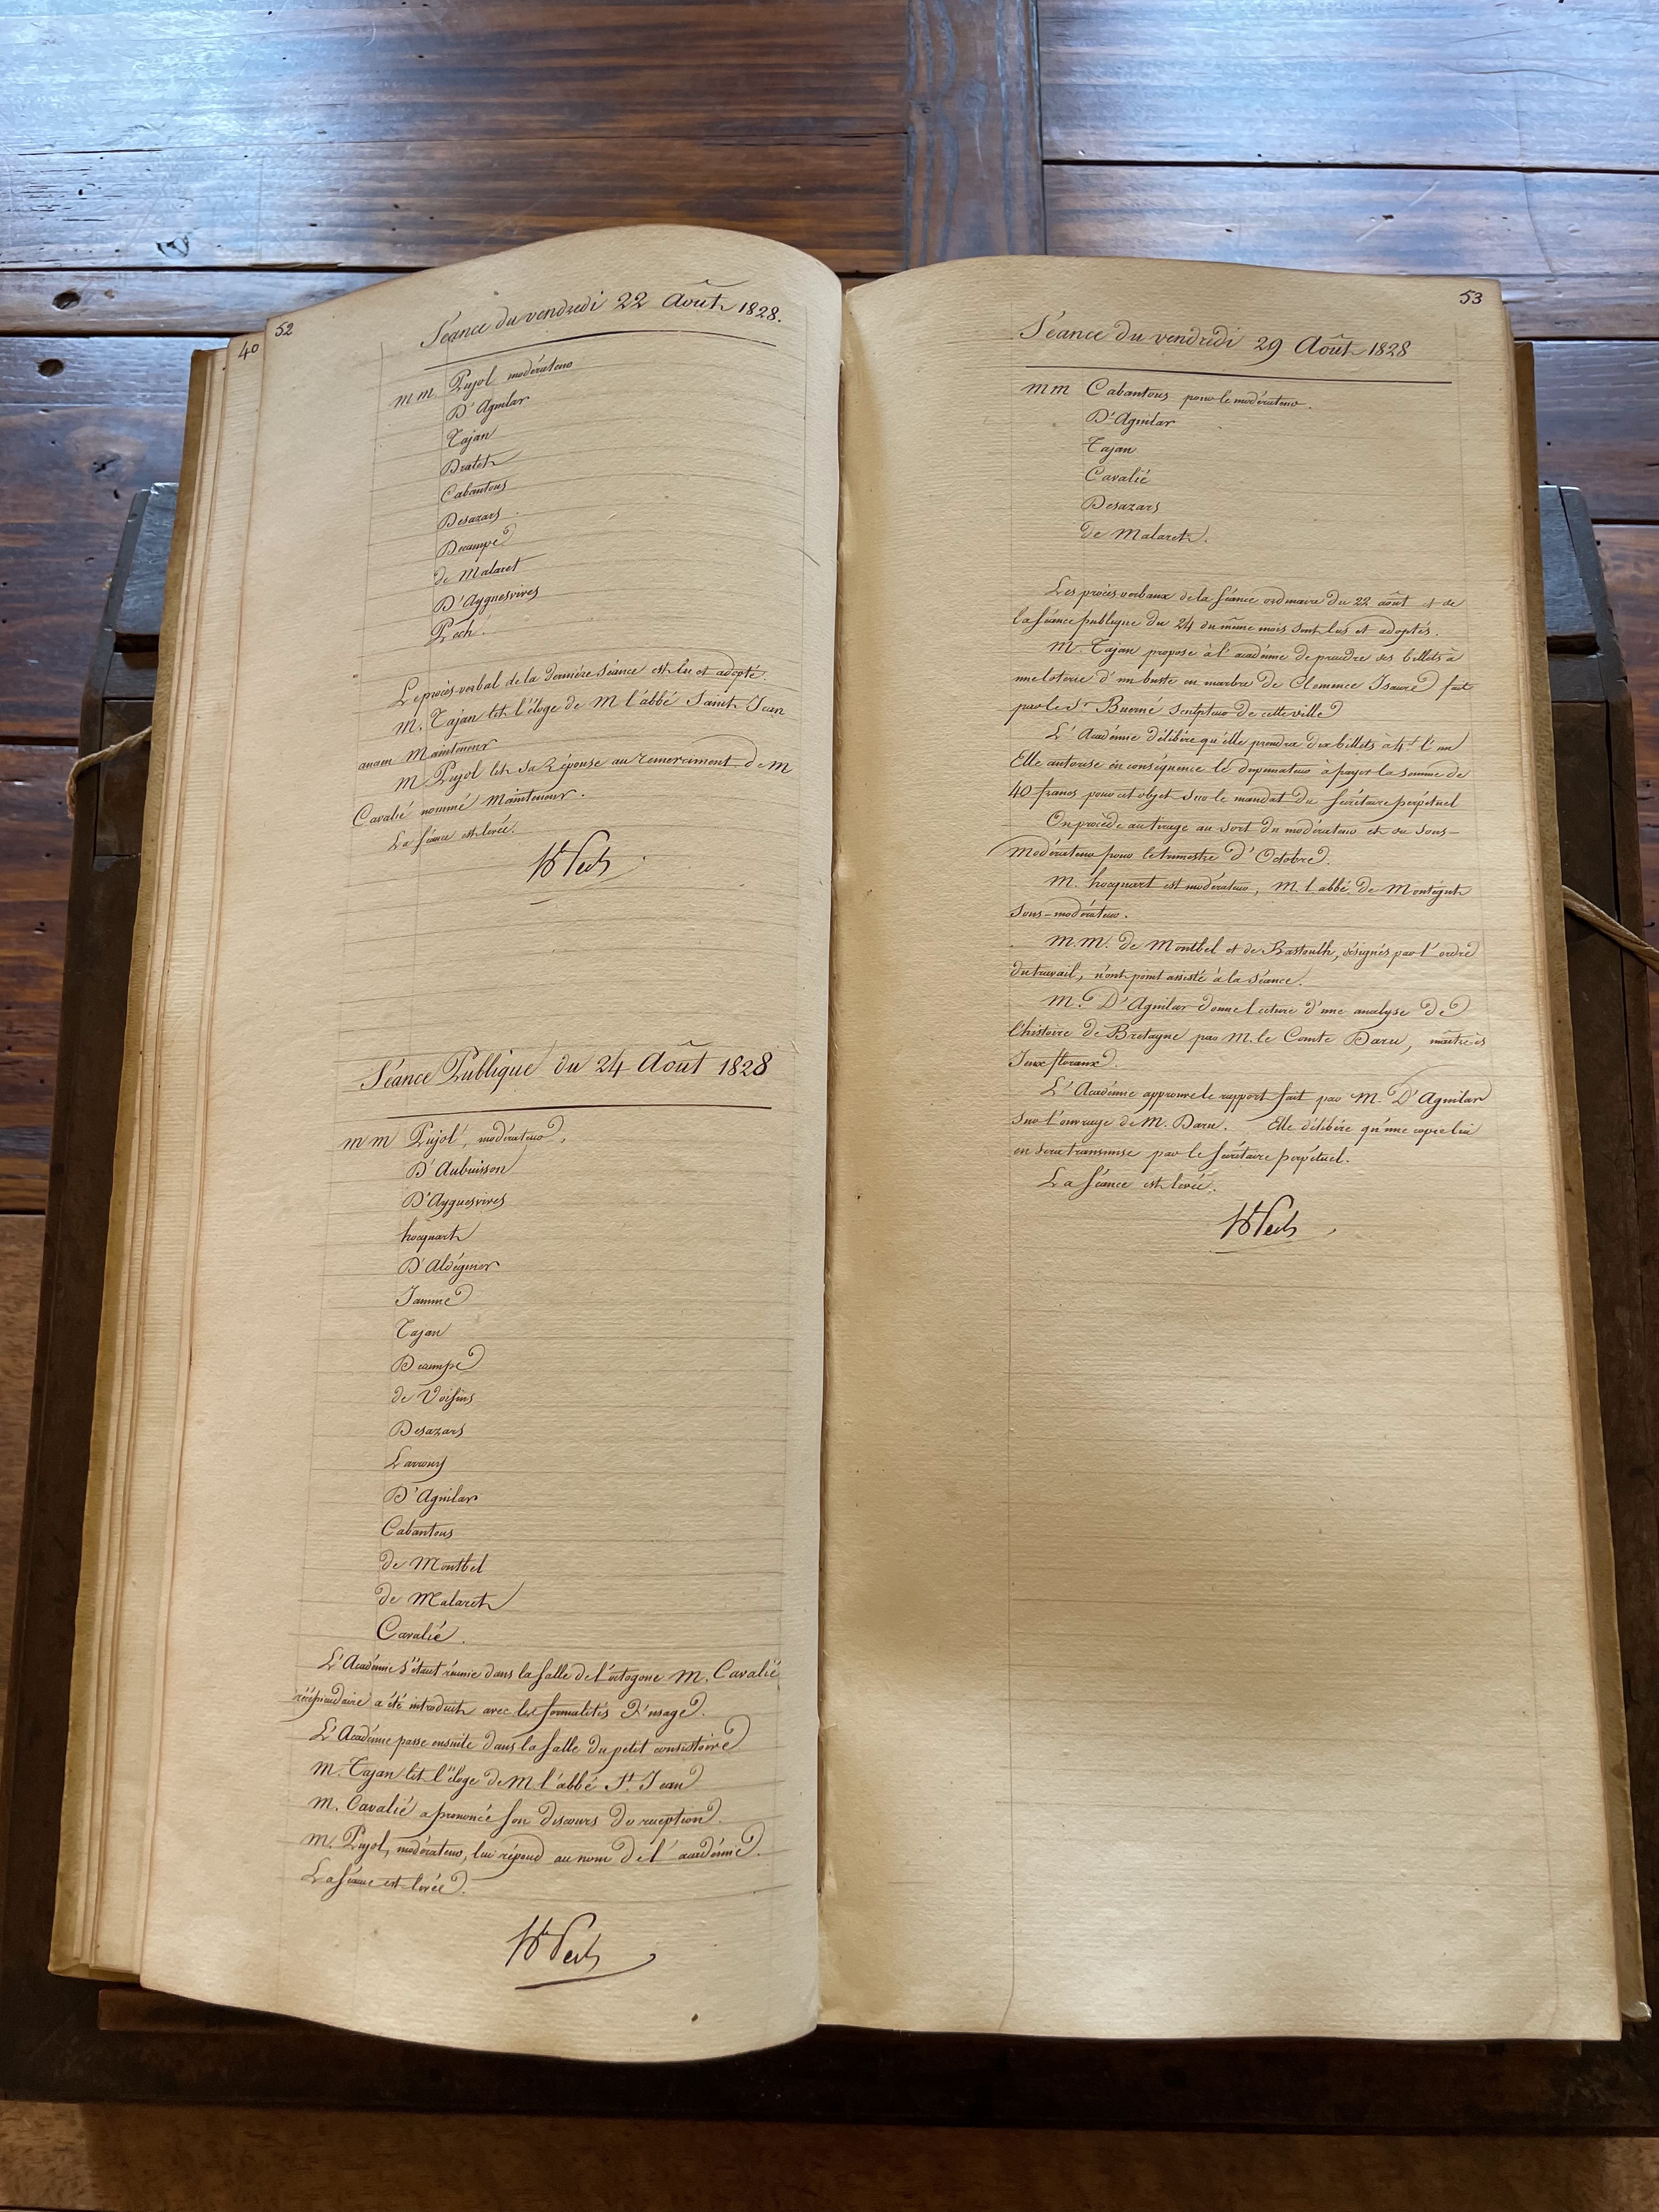 40
52
Séance du vendredi 22 Août 1828.
MM. Pujol modérateur
D'Aguilar
Tajan
Dralet
Cabantous
Desazars
Decampe
de Malaret
D'Ayguesvives
Pech.
Le procès-verbal de la dernière séance est lu et adopté.
M. Tajan lit l'éloge de M l'abbé Saint-Jean
ancien Mainteneur
M Pujol lit sa Réponse au remerciment de M
Cavalié nommé Mainteneur.
La séance est levée.
Pech
Séance Publique du 24 Août 1828
MM Pujol, modérateur,
D'Aubuisson
D'Ayguesvives
hocquart
D'Aldéguier
Jamme
Tajan
Decampe
de Voisins
Desazars
D'Aguilar
Cabantous
de Montbel
de Malaret
Cavalié.
L'Académie s'étant réunie dans la salle de l'octogone M. Cavalié
récipiendaire a été introduit avec les formalités d'usage.
L'Académie passe ensuite dans la salle du petit consistoire
M. Tajan lit l'éloge de M l'abbé St. Jean
M. Cavalié a prononcé son discours de réception.
M. Pujol, modérateur, lui répond au nom de l'académie.
La séance est levée.
Pech
53
Séance du vendredi 29 Août 1828
MM Cabantous pour le modérateur.
D'Aguilar
Tajan
Cavalié
Desazars
de Malaret.
Les procès verbaux de la séance ordinaire du 22 août et de
la séance publique du 24 du même mois sont lus et adoptés.
M. Tajan propose à l'académie de prendre des billets à
une loterie d'un buste en marbre de Clemence Isaure fait
par le Sr sculpteur de cette ville
L'Académie délibère qu'elle prendra dix billets à 4f l'un
Elle autorise en conséquence le dispensateur à payer la somme de
40 francs pour cet objet sur le mandat du secrétaire perpétuel
On procède au tirage au sort du modérateur et du sous-
modérateur pour le trimestre d'Octobre.
M. hocquart est modérateur, M. l'abbé de Montégut
sous-modérateur.
M.M. de Montbel et de Rastoulh, désignés par l'ordre
du travail, n'ont point assisté à la séance.
M. D'Aguilar donne lecture d'une analyse de
l'histoire de Bretagne par M. le Comte Daru, maître ès
Jeux floraux.
L'Académie approuve le rapport fait par M. D'Aguilar
sur l'ouvrage de M. Daru. Elle délibère qu'une copie lui
en sera transmise par le secrétaire perpétuel.
La séance est levée.
Pech